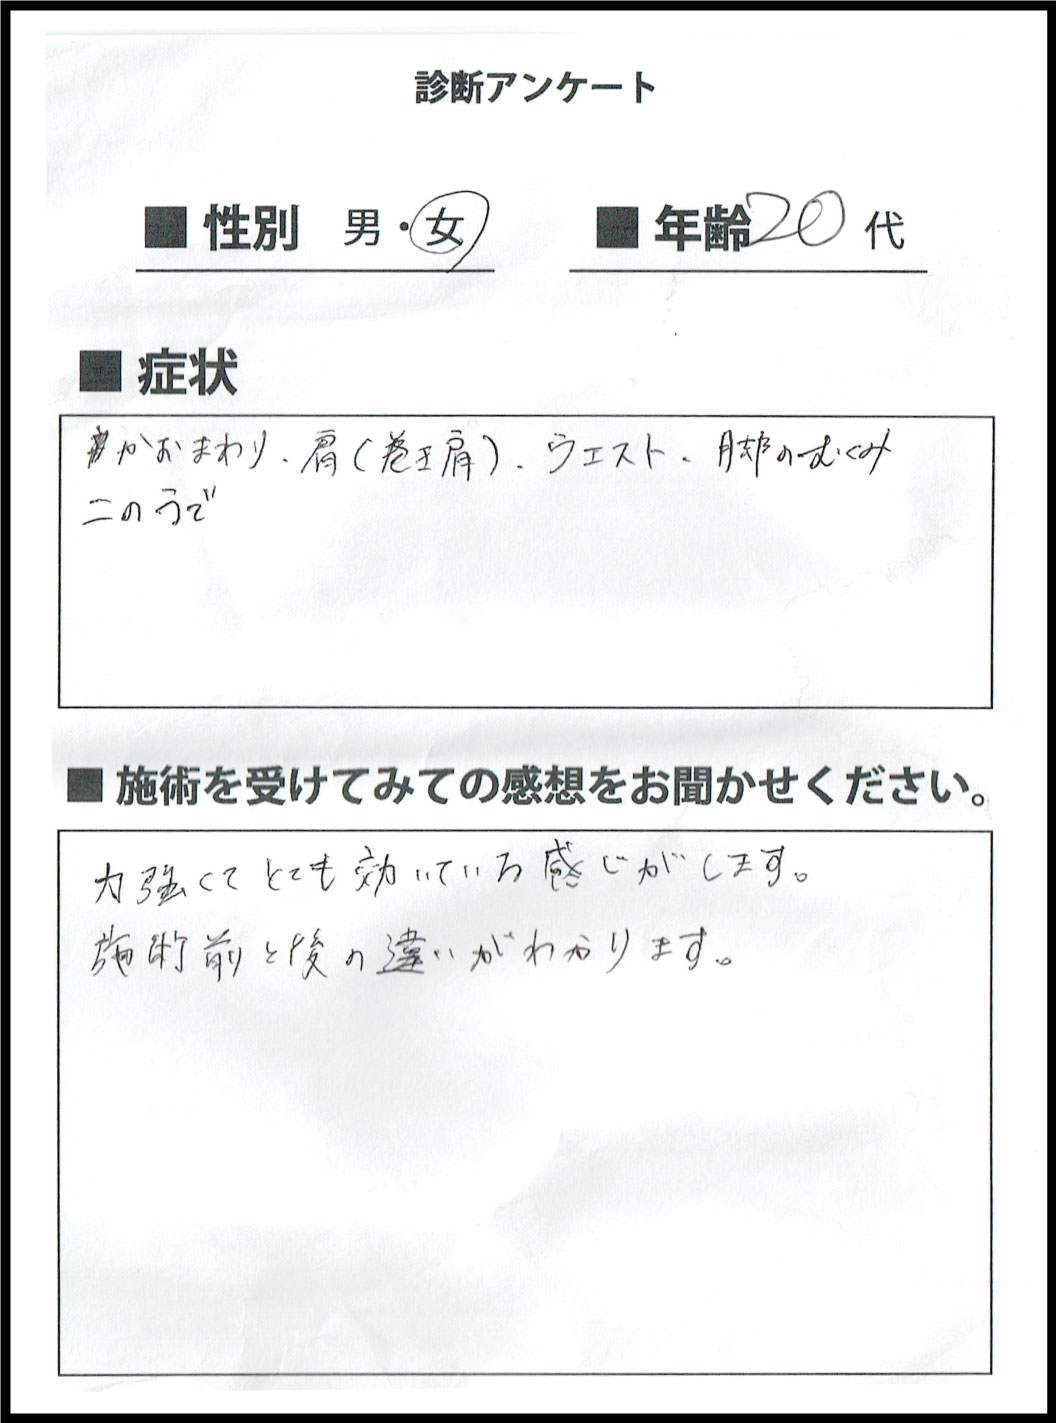 診断アンケート
■ 性別 男・女 ■ 年齢 20 代
■ 症状
かおまわり、肩(巻き肩)、ウエスト、脚のむくみ
二のうで
■ 施術を受けてみての感想をお聞かせください。
力強くてとても効いている感じがします。
施術前と後の違いがわかります。